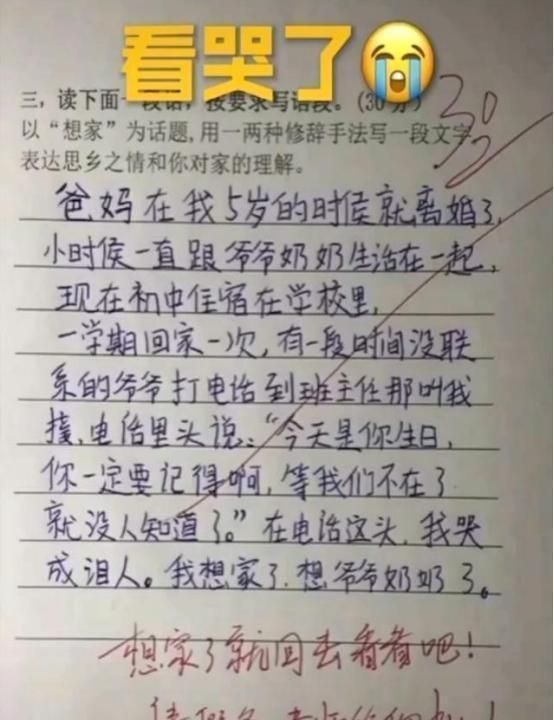 看哭了
三，读下面一段话，按要求写话段。(30分)
30
以“想家”为话题,用一两种修辞手法写一段文字
表达思乡之情和你对家的理解。
爸妈在我5岁的时侯就离婚了,
小时侯一直跟爷爷奶奶生活在一起,
现在初中住宿在学校里,
一学期回家一次,有一段时间没联
系的爷爷打电话到班主任那叫我
接,电话里头说:“今天是你生日,
你一定要记得啊,等我们不在了
就没人知道了。”在电话这头,我哭
成泪人。我想家了,想爷爷奶奶了。
想家了就回去看看吧!